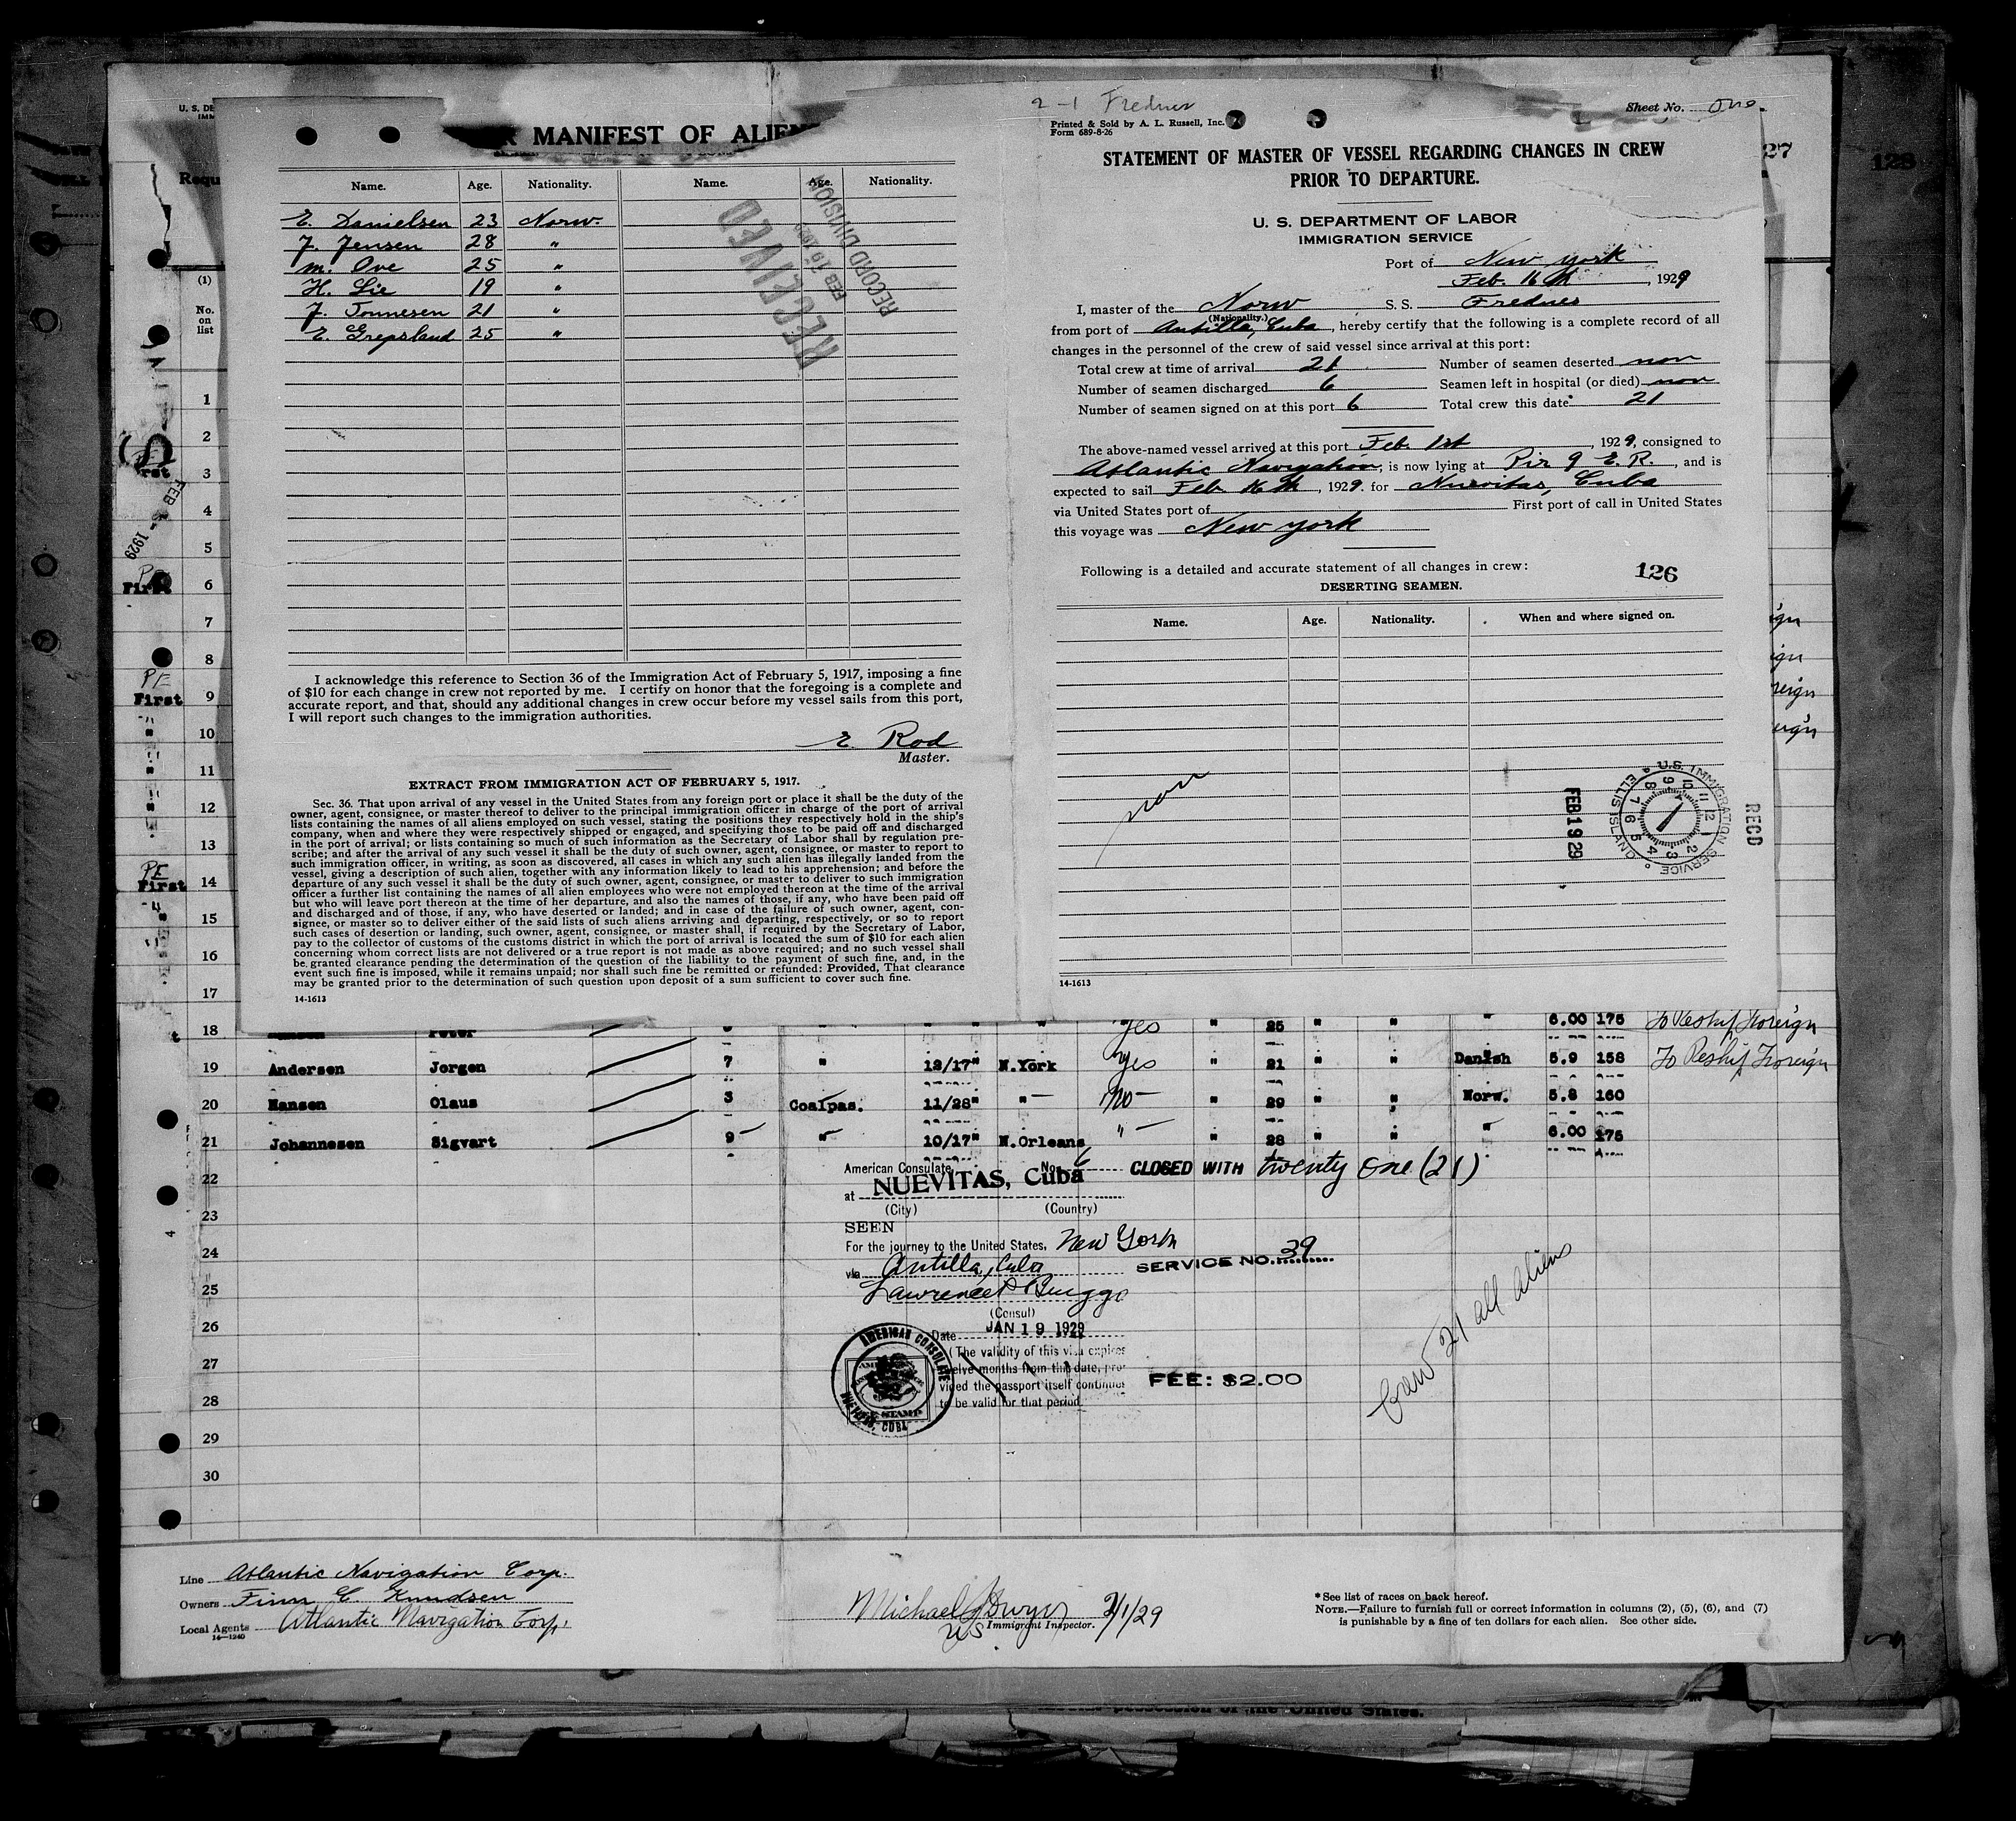 U. S. DE
IMM
Requ
MANIFEST OF ALIEN
Name. Age. Nationality. Name. Age. Nationality.
E. Danielsen 23 Norw.
J. Jensen 28 "
M. Ove 25 "
H. Lie 19 "
J. Tonnesen 21 "
E. Grepsland 25 "
RECEIVED
FEB 19 1929
RECORD DIVISION
I acknowledge this reference to Section 36 of the Immigration Act of February 5, 1917, imposing a fine
of $10 for each change in crew not reported by me. I certify on honor that the foregoing is a complete and
accurate report, and that, should any additional changes in crew occur before my vessel sails from this port,
I will report such changes to the immigration authorities.
E. Rod
Master.
EXTRACT FROM IMMIGRATION ACT OF FEBRUARY 5, 1917.
Sec. 36. That upon arrival of any vessel in the United States from any foreign port or place it shall be the duty of the
owner, agent, consignee, or master thereof to deliver to the principal immigration officer in charge of the port of arrival
lists containing the names of all aliens employed on such vessel, stating the positions they respectively hold in the ship's
company, when and where they were respectively shipped or engaged, and specifying those to be paid off and discharged
in the port of arrival; or lists containing so much of such information as the Secretary of Labor shall by regulation pre-
scribe; and after the arrival of any such vessel it shall be the duty of such owner, agent, consignee, or master to report to
such immigration officer, in writing, as soon as discovered, all cases in which any such alien has illegally landed from the
vessel, giving a description of such alien, together with any information likely to lead to his apprehension; and before the
departure of any such vessel it shall be the duty of such owner, agent, consignee, or master to deliver to such immigration
officer a further list containing the names of all alien employees who were not employed thereon at the time of the arrival
but who will leave port thereon at the time of her departure, and also the names of those, if any, who have been paid off
and discharged and of those, if any, who have deserted or landed; and in case of the failure of such owner, agent, con-
signee, or master so to deliver either of the said lists of such aliens arriving and departing, respectively, or so to report
such cases of desertion or landing, such owner, agent, consignee, or master shall, if required by the Secretary of Labor,
pay to the collector of customs of the customs district in which the port of arrival is located the sum of $10 for each alien
concerning whom correct lists are not delivered or a true report is not made as above required; and no such vessel shall
be granted clearance pending the determination of the question of the liability to the payment of such fine, and, in the
event such fine is imposed, while it remains unpaid; nor shall such fine be remitted or refunded: Provided, That clearance
may be granted prior to the determination of such question upon deposit of a sum sufficient to cover such fine.
14-1613
2-1 Frednes
Printed & Sold by A. L. Russell, Inc.
Form 689-8-26
Sheet No. One.
STATEMENT OF MASTER OF VESSEL REGARDING CHANGES IN CREW
PRIOR TO DEPARTURE.
U. S. DEPARTMENT OF LABOR
IMMIGRATION SERVICE
Port of New York
Feb. 16th, 1929
I, master of the Norw S. S. Frednes
(Nationality.)
from port of Antilla, Cuba, hereby certify that the following is a complete record of all
changes in the personnel of the crew of said vessel since arrival at this port:
Total crew at time of arrival 21 Number of seamen deserted non
Number of seamen discharged 6 Seamen left in hospital (or died) non
Number of seamen signed on at this port 6 Total crew this date 21
The above-named vessel arrived at this port Feb. 1st, 1929, consigned to
Atlantic Navigation, is now lying at Pir 9 E. R., and is
expected to sail Feb. 16th, 1929. for Nuevitas, Cuba
via United States port of First port of call in United States
this voyage was New York
Following is a detailed and accurate statement of all changes in crew:
126
DESERTING SEAMEN.
Name. Age. Nationality. When and where signed on.
non
RECD
FEB 19 29
U.S. IMMIGRATION SERVICE
ELLIS ISLAND
14-1613
27
128
(1)
No.
on
list
1
2
3
4
5
6
7
8
9
10
11
12
13
14
15
16
17
FEB - 1929
First
PE
First
PE
First
18 Peter " " " yes " 25 " " " 6.00 175 To Reship Foreign
19 Andersen Jorgen 7 " 12/17" N.York yes " 21 " " Danish 5.9 158 To Reship Foreign
20 Hansen Olaus 3 Coalpas. 11/28" " No " 29 " " Norw. 5.8 160
21 Johannesen Sigvart 9 " 10/17" N.Orleans " " 28 " " " 6.00 175
22
23
24
25
26
27
28
29
30
American Consulate No. 6
CLOSED WITH twenty one (21)
at NUEVITAS, Cuba
(City) (Country)
SEEN
For the journey to the United States, New York
via Antilla, Cuba
SERVICE NO. 39
Lawrence P Briggs
(Consul)
Date JAN 19 1929
(The validity of this visa expires
twelve months from this date, pro-
vided the passport itself continues
to be valid for that period.
AMERICAN CONSULATE
NUEVITAS, CUBA
FEE: $2.00
Crew 21 all aliens
Line Atlantic Navigation Corp.
Owners Finn C. Knudsen
Local Agents Atlantic Navigation Corp.
14-1240
Michael J Dwyer 2/1/29
US Immigrant Inspector.
* See list of races on back hereof.
NOTE.—Failure to furnish full or correct information in columns (2), (5), (6), and (7)
is punishable by a fine of ten dollars for each alien. See other side.
possession of the United States.